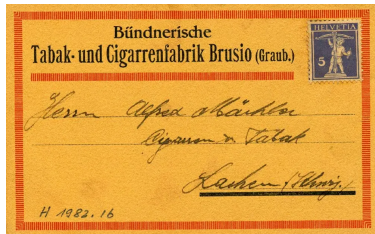 HELVETIA
5
Bündnerische
Tabak- und Cigarrenfabrik Brusio (Graub.)
Herrn Alfred Mächler
Cigarren & Tabak
Lachen (Schwyz.)
H 1982.16